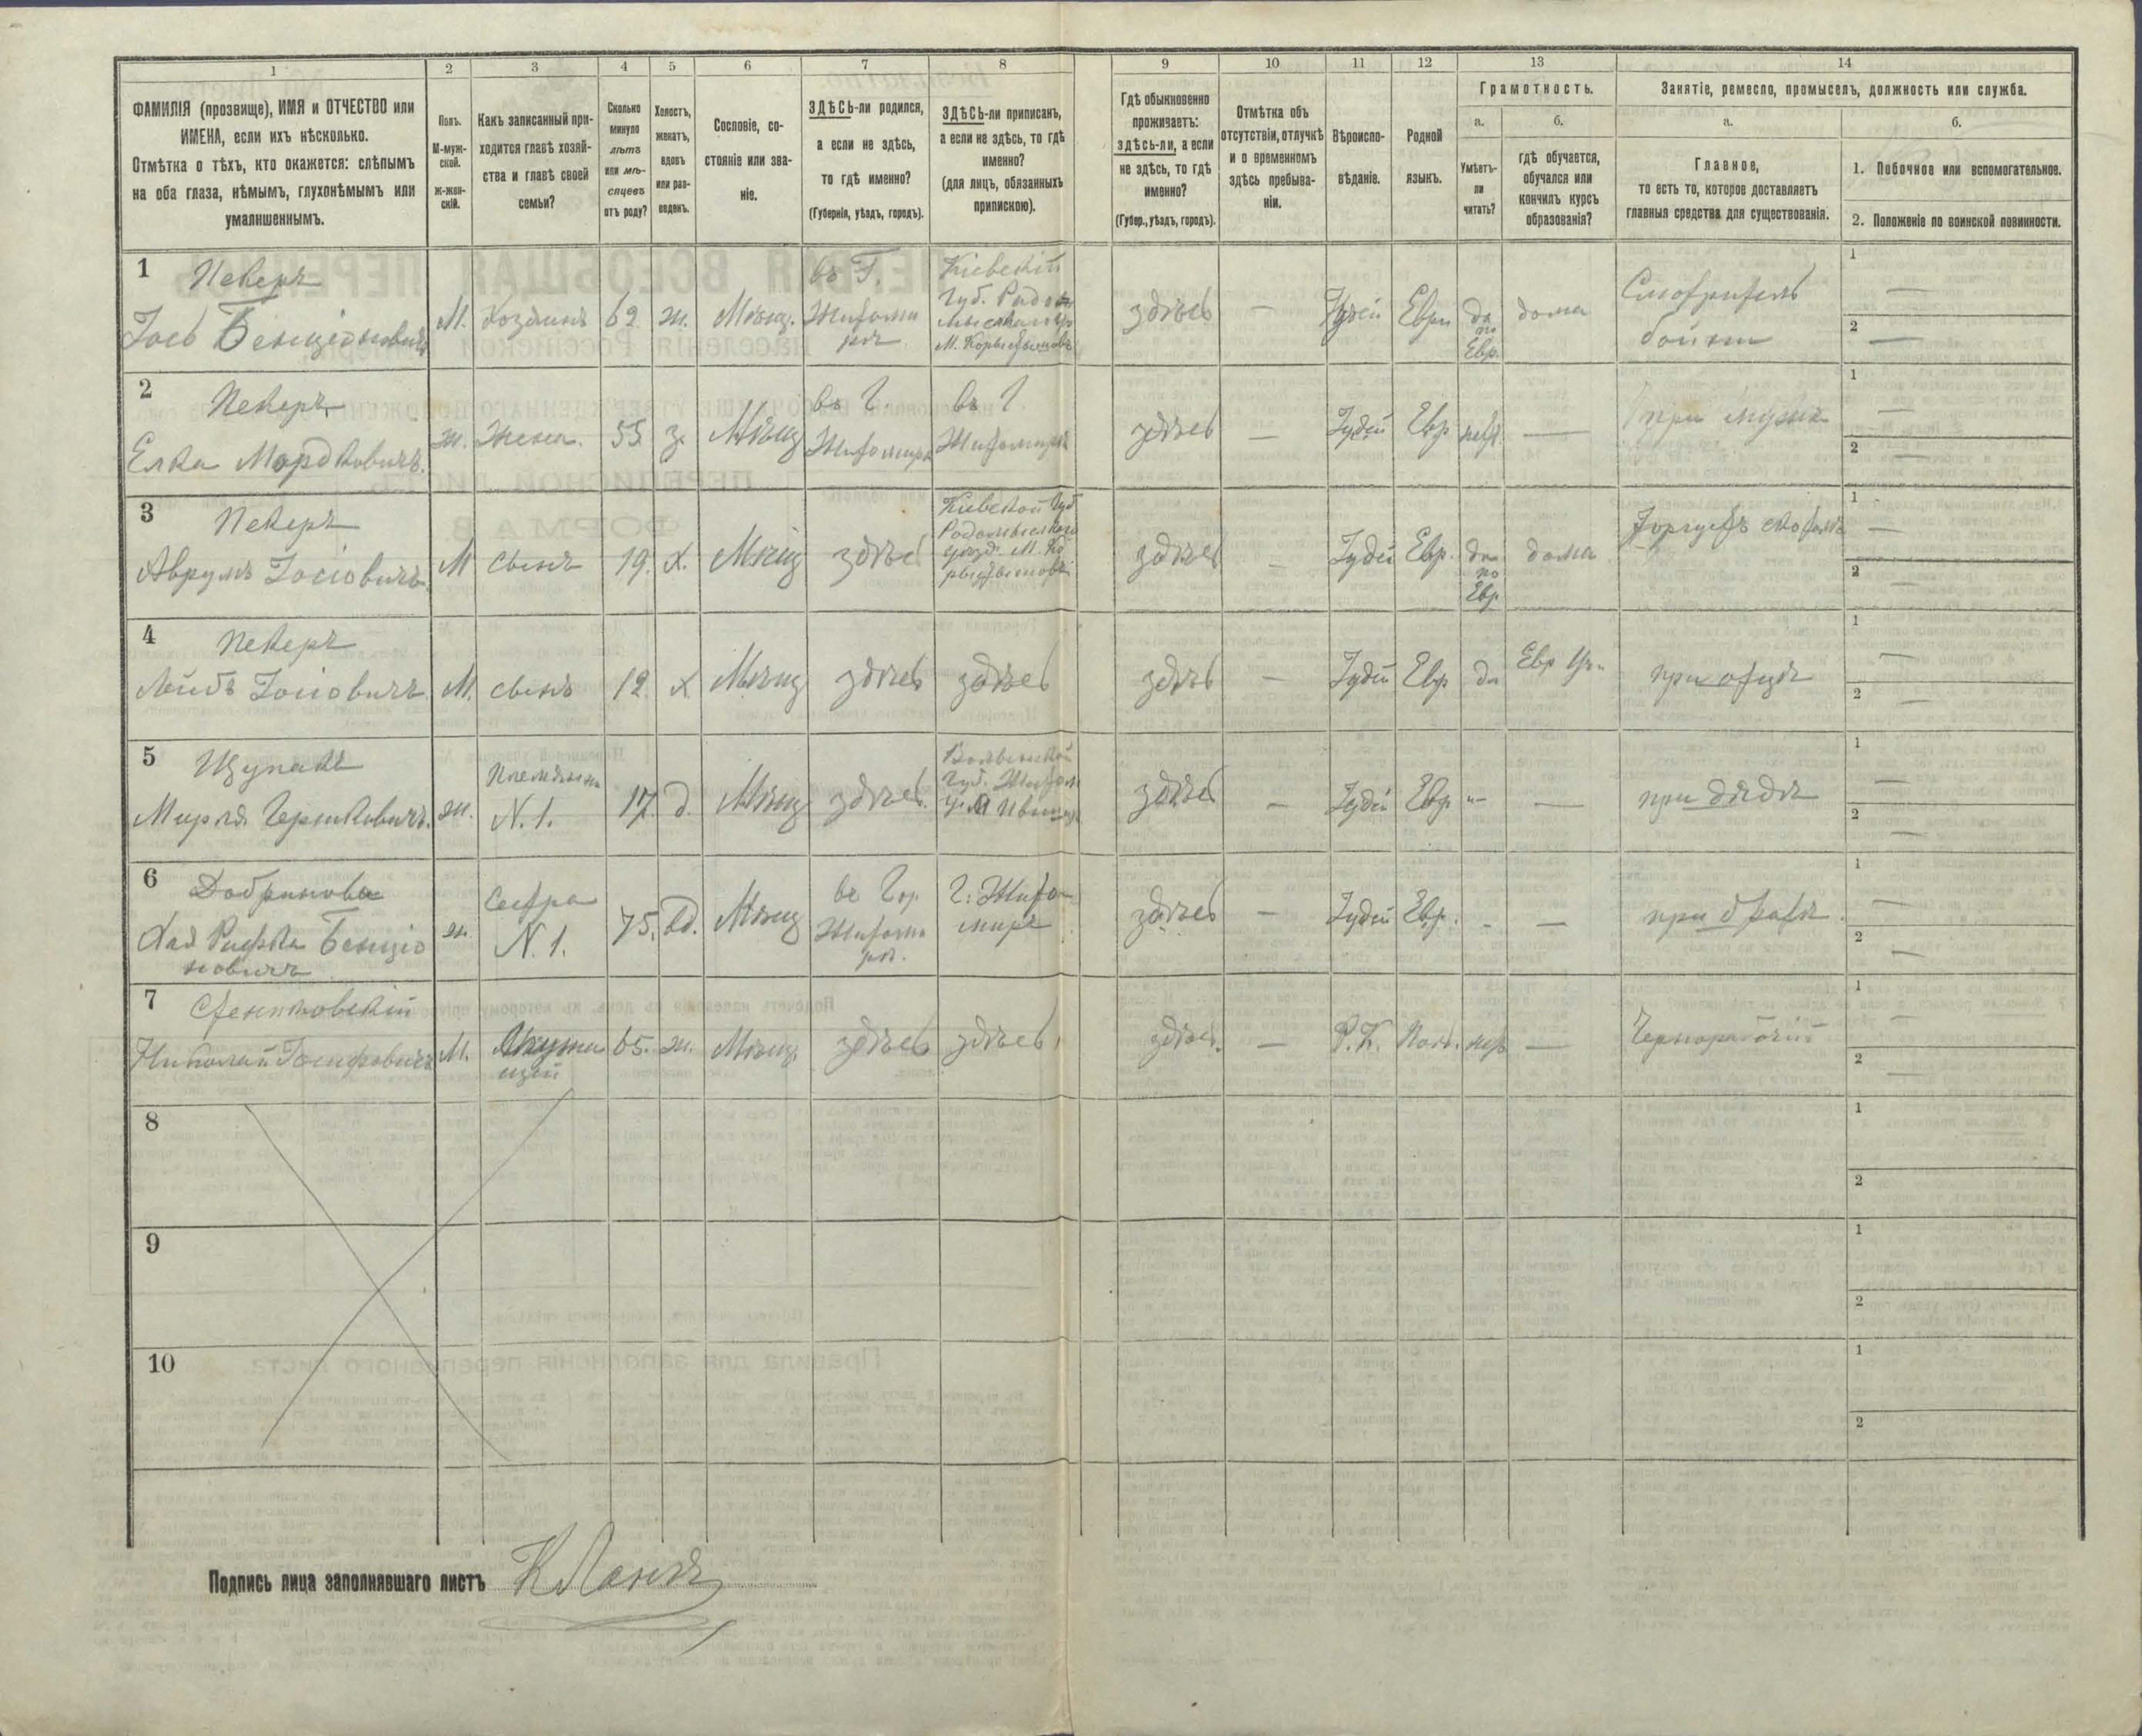 1
2
3
4
5
6
7
8
9
10
11
12
13
14
ФАМИЛІЯ (прозвище), ИМЯ и ОТЧЕСТВО или
ИМЕНА, если ихъ нѣсколько.
Отмѣтка о тѣхъ, кто окажется: слѣпымъ
на оба глаза, нѣмымъ, глухонѣмымъ или
умалишеннымъ.
Полъ.
М-муж-
ской.
Ж-жен-
скій.
Какъ записанный при-
ходится главѣ хозяй-
ства и главѣ своей
семьи?
Сколько
минуло
лѣтъ
или мѣ-
сяцевъ
отъ роду?
Холостъ,
женатъ,
вдовъ
или раз-
веденъ.
Сословіе, со-
стояніе или зва-
ніе.
ЗДѢСЬ-ли родился,
а если не здѣсь,
то гдѣ именно?
(Губернія, уѣздъ, городъ).
ЗДѢСЬ-ли приписанъ,
а если не здѣсь, то гдѣ
именно?
(для лицъ, обязанныхъ
припискою).
Гдѣ обыкновенно
проживаетъ:
здѣсь-ли, а если
не здѣсь, то гдѣ
именно?
(Губер., уѣздъ, городъ).
Отмѣтка объ
отсутствіи, отлучкѣ
и о временномъ
здѣсь пребыва-
ніи.
Вѣроиспо-
вѣданіе.
Родной
языкъ.
Грамотность.
а.
Умѣетъ-
ли
читать?
б.
гдѣ обучается,
обучался или
кончилъ курсъ
образованія?
Занятіе, ремесло, промыселъ, должность или служба.
а.
Главное,
то есть то, которое доставляетъ
главныя средства для существованія.
б.
1. Побочное или вспомогательное.
2. Положеніе по воинской повинности.
1
Пекеръ
Іось Бенціоновичъ
М.
Хозяинъ
62.
ж.
Мѣщ.
въ Г.
Житоми
рѣ
Кіевскій
Губ. Радо
мысльск
М. Корыстышовъ
здѣсь
—
Іудей
Евр
да
по
Евр.
дома
Смотритель
бойни
1
—
2
—
2
Пекеръ
Елка Мордковичъ.
ж.
Жена.
55
з.
Мѣщ
въ Г.
Житомирѣ
въ Г.
Житомирѣ
здѣсь
—
Іудей
Евр
нѣт
—
при мужѣ
1
—
2
—
3
Пекеръ
Аврумъ Іосіовичъ.
М
сынъ
19.
х.
Мѣщ
здѣсь
Кіевской Губ
Радомысльскаго
уѣзд. М. Ко
рыстышовъ
здѣсь
—
Іудей
Евр.
да
по
Евр
дома
Торгуетъ скотомъ
1
—
2
—
4
Пекеръ
Лейбъ Іосіовичъ
М.
сынъ
12.
х
Мѣщ
здѣсь
здѣсь
здѣсь
—
Іудей
Евр
да
Евр Уч.
при отцѣ
1
—
2
—
5
Щупакъ
Мирля Гершковичъ.
ж.
Племянни
N. 1.
17.
д.
Мѣщ
здѣсь.
Волынской
Губ. Житом
здѣсь
—
Іудей
Евр
—
при дядѣ
1
—
2
—
6
Добринова
Хая Рифка Бенціо
новичъ
ж.
Сестра
N. 1.
75.
вд.
Мѣщ
въ Гор.
Житоми
рѣ.
Г. Жито
мирѣ
здѣсь
—
Іудей
Евр.
-
—
при братѣ
1
—
2
—
7
Стенпковскій
Николай Іосифовичъ
М.
65.
ж.
Мѣщ.
здѣсь
здѣсь.
здѣсь.
—
Р.К.
Пол.
—
Чернорабочій
1
—
2
—
8
1
2
9
1
2
10
1
2
Подпись лица заполнявшаго листъ